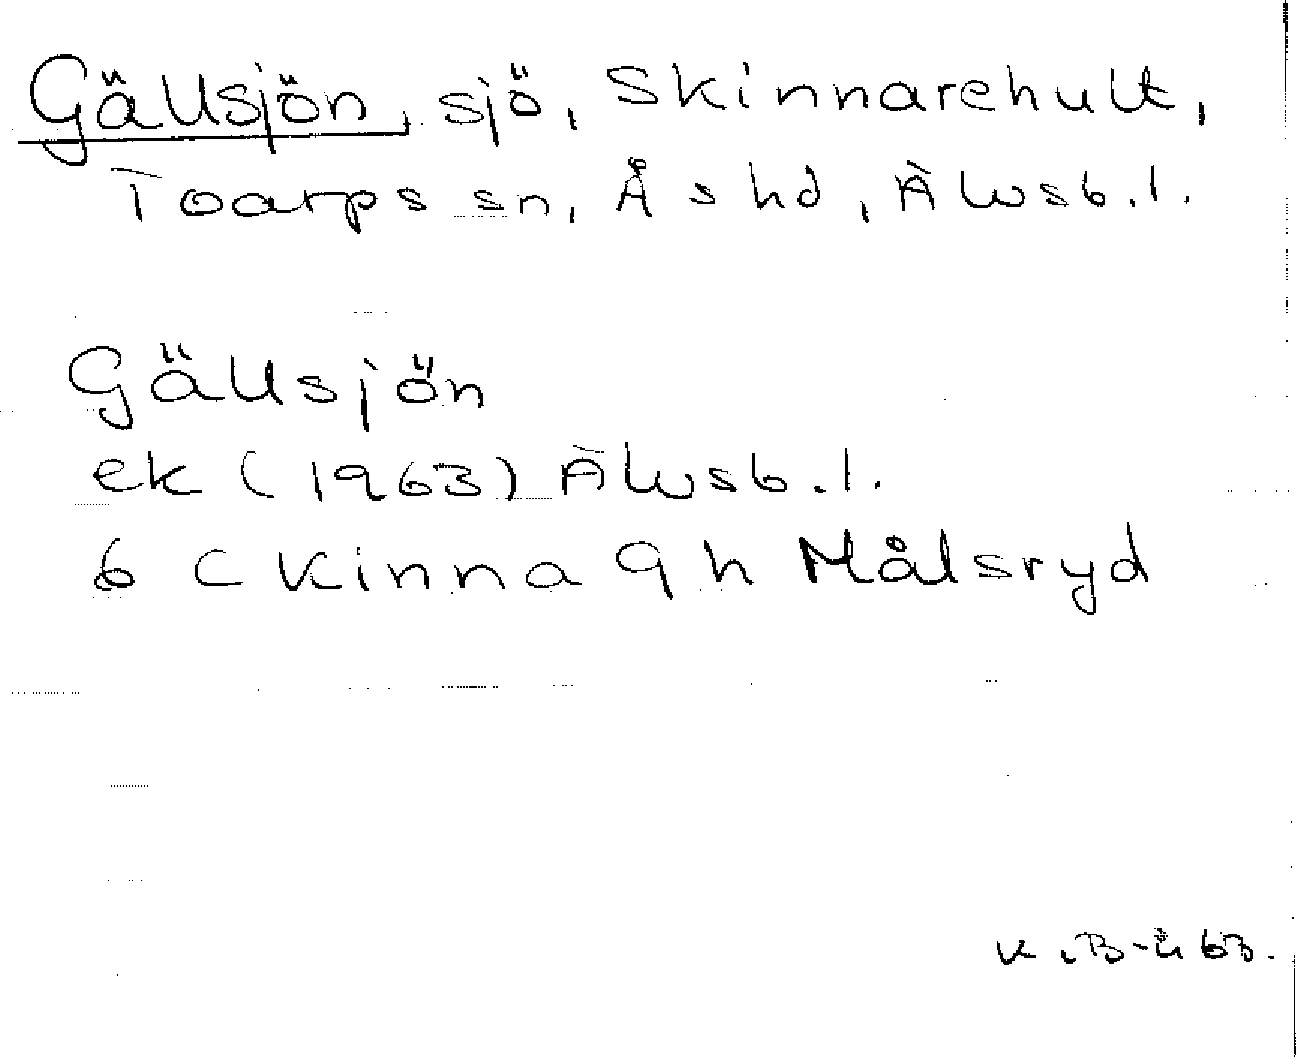 Gällsjön, sjö, Skinnarehult,
Toarps sn, Ås hd, Älvsb. l.
Gällsjön
ek (1963) Älvsb. l.
6 C Kinna 9 h Målsryd
63.